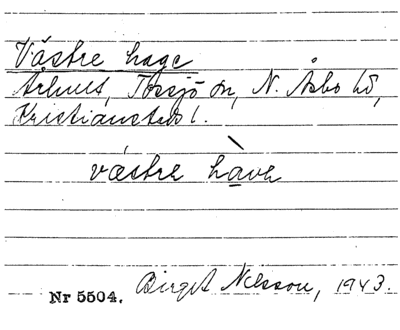 Västre hage
Århult, Tossjö sn, N. Åsbo hd,
Kristianstads l.
västre hàve
Nr 5504. Birget Nilsson, 1943.